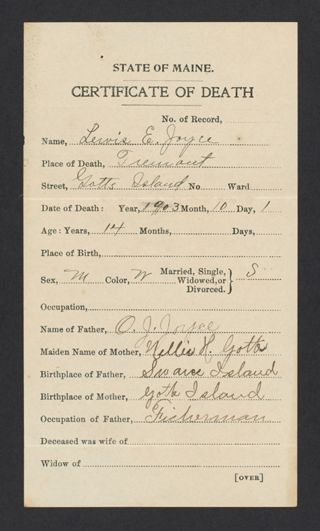 STATE OF MAINE.
CERTIFICATE OF DEATH
No. of Record,
Name, Lewis E. Joyce
Place of Death, Tremont
Street, Gotts Island No Ward
Date of Death: Year, 1903 Month, 10 Day, 1
Age: Years, 14 Months, Days,
Place of Birth,
Sex, M Color, W Married, Single, Widowed, or Divorced. } S
Occupation,
Name of Father, O. J. Joyce
Maiden Name of Mother, Nellie H. Gotts
Birthplace of Father, Swans Island
Birthplace of Mother, Gotts Island
Occupation of Father, Fisherman
Deceased was wife of
Widow of
[OVER]